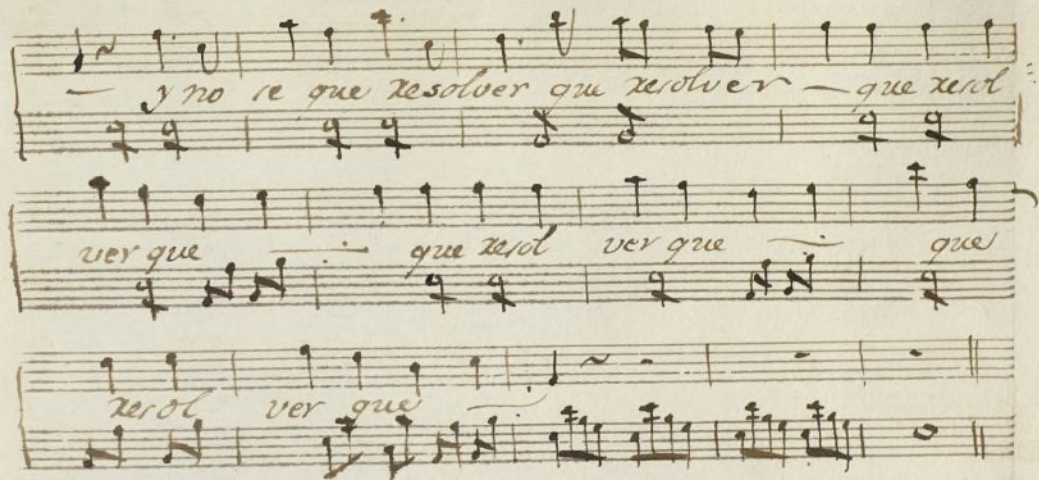 — y no se que resolver que resolver — que resol
ver que — . — que resol ver que — . que
resol ver que —